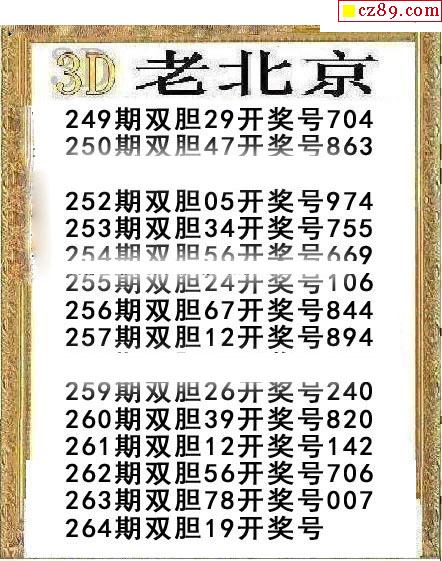 cz89.com
3D 老北京
249期双胆29开奖号704
250期双胆47开奖号863
252期双胆05开奖号974
253期双胆34开奖号755
254期双胆56开奖号669
255期双胆24开奖号106
256期双胆67开奖号844
257期双胆12开奖号894
259期双胆26开奖号240
260期双胆39开奖号820
261期双胆12开奖号142
262期双胆56开奖号706
263期双胆78开奖号007
264期双胆19开奖号